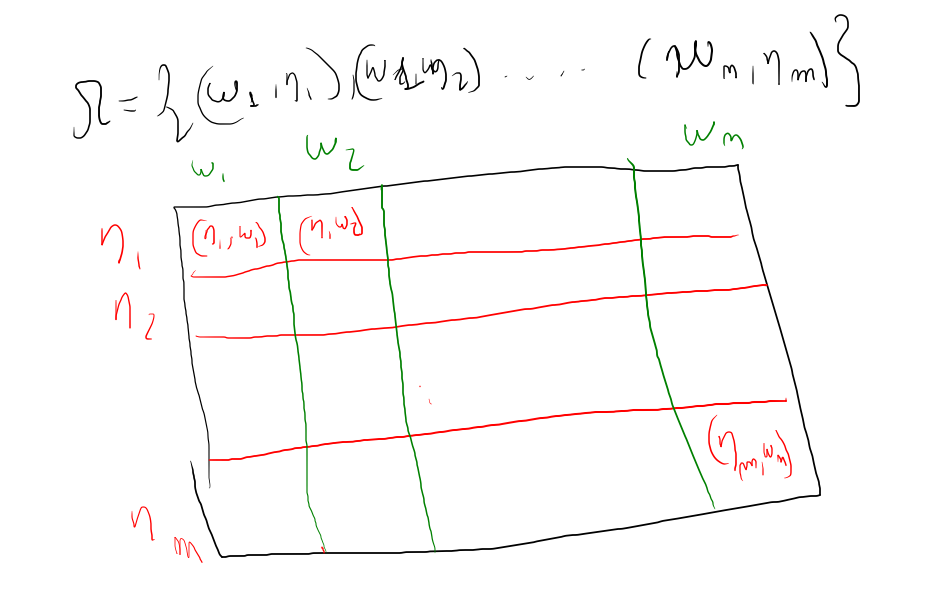 Ω = {(ω₁, η₁), (ω₁, η₂) ..... (ω_n, η_m)}
ω₁ ω₂ ω_n
η₁ (η₁, ω₁) (η₁, ω₂)
η₂
(η_m, ω_n)
η_m